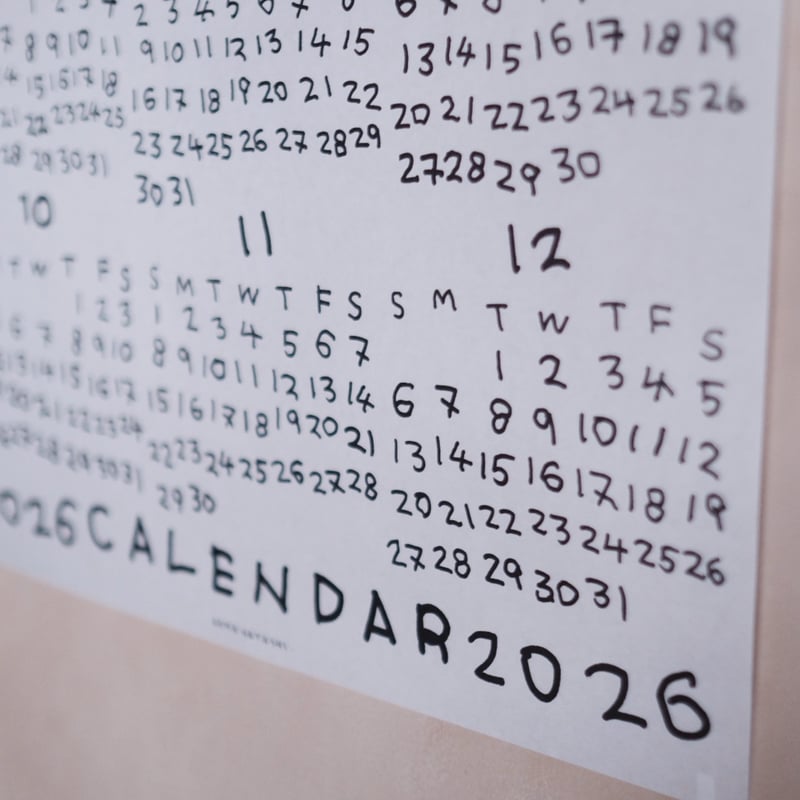 7 8 9 10 11
14 15 16 17 18
21 22 23 24 25
28 29 30 31
2 3 4 5 6 7 8
9 10 11 12 13 14 15
16 17 18 19 20 21 22
23 24 25 26 27 28 29
30 31
6 7 8
13 14 15 16 17 18 19
20 21 22 23 24 25 26
27 28 29 30
10
T W T F S
1 2 3
6 7 8 9 10
13 14 15 16 17
20 21 22 23 24
27 28 29 30 31
11
S M T W T F S
1 2 3 4 5 6 7
8 9 10 11 12 13 14
15 16 17 18 19 20 21
22 23 24 25 26 27 28
29 30
12
S M T W T F S
1 2 3 4 5
6 7 8 9 10 11 12
13 14 15 16 17 18 19
20 21 22 23 24 25 26
27 28 29 30 31
026 CALENDAR 2026